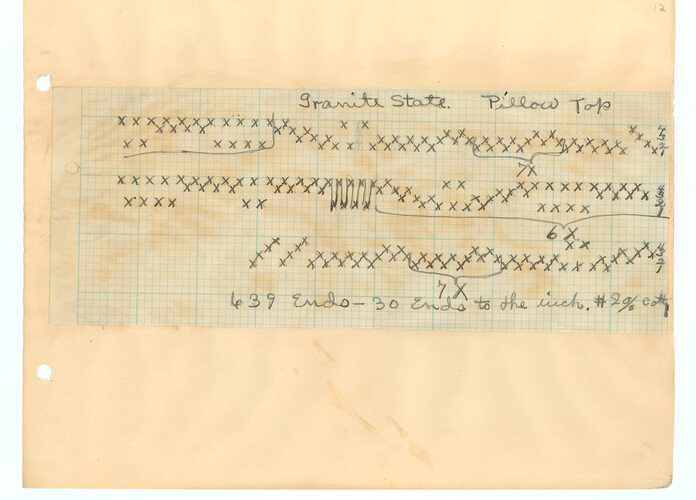 12
Granite State. Pillow Top
4
3
2
1
7X
4
3
2
1
6 X
4
3
2
1
7 X
639 Ends - 30 Ends to the inch. #20/6 cott